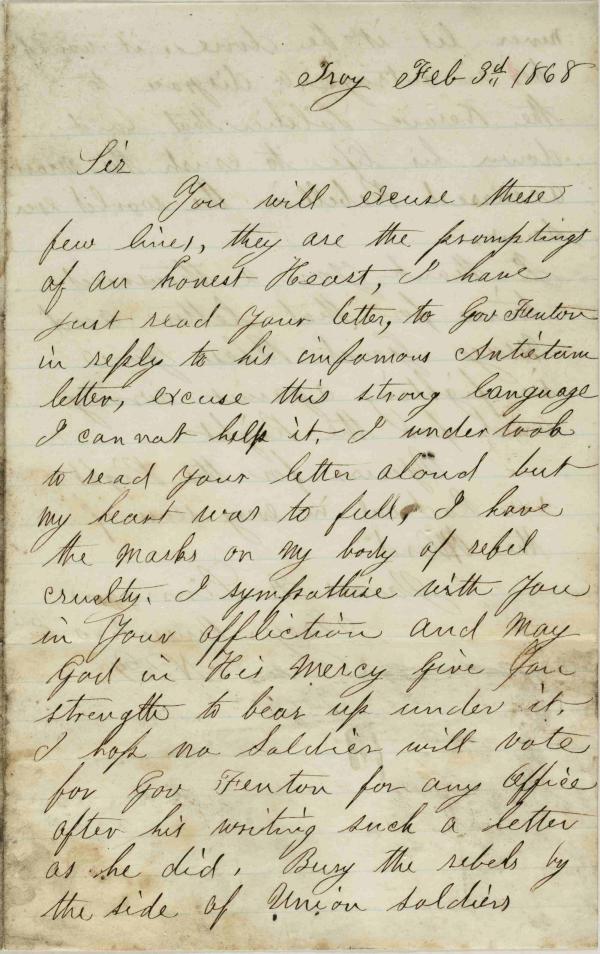 Troy Feb 3rd 1868
Sir
You will excuse these
few lines, they are the promptings
of an honest Heart, I have
just read your letter, to Gov Fenton
in reply to his infamous Antietam
letter, excuse this strong language
I can not help it. I undertook
to read your letter aloud but
my heart was to full, I have
the marks on my body of rebel
cruelty. I sympathise with you
in your affliction and may
God in His Mercy Give you
strength to bear up under it.
I hop no Soldier will vote
for Gov Fenton for any Office
after his writing such a letter
as he did. Bury the rebels by
the side of Union soldiers